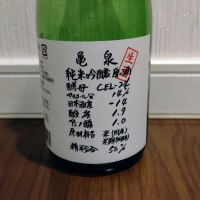 亀泉
生
純米吟醸原酒
酵母 CEL-24
アルコール分 14%
日本酒度 -14
酸度 1.9
アミノ酸 1.0
原材料名 米(国産)
米麹(国産米)
精米歩合 50%